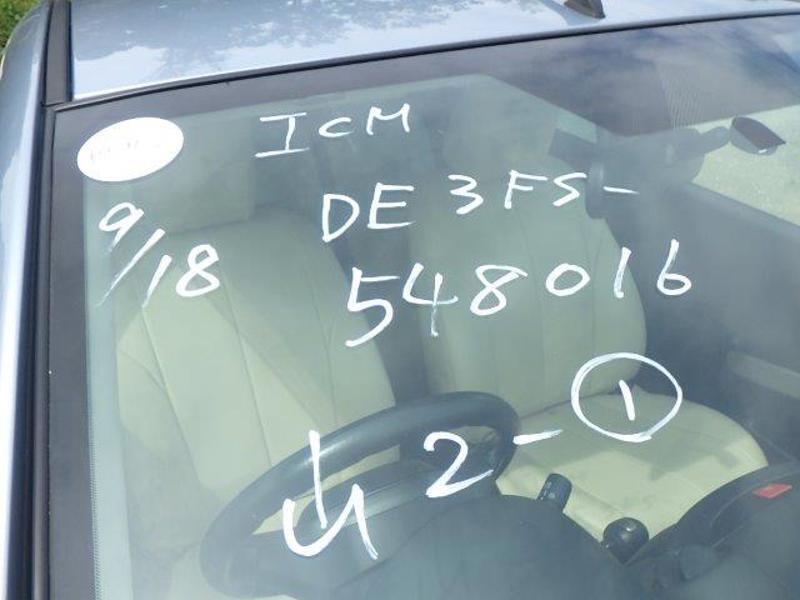 ICM
9/18
DE3FS-
548016
山2-①